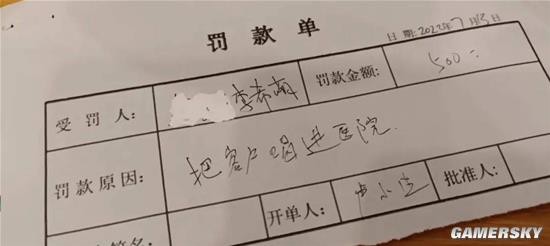 罚款单
日 期: 2022年7月15日
受 罚 人: 李希萌 罚款金额: 500:
罚款原因: 把客户喝进医院.
开单人: 卢小 批准人:
签名:
GAMERSKY